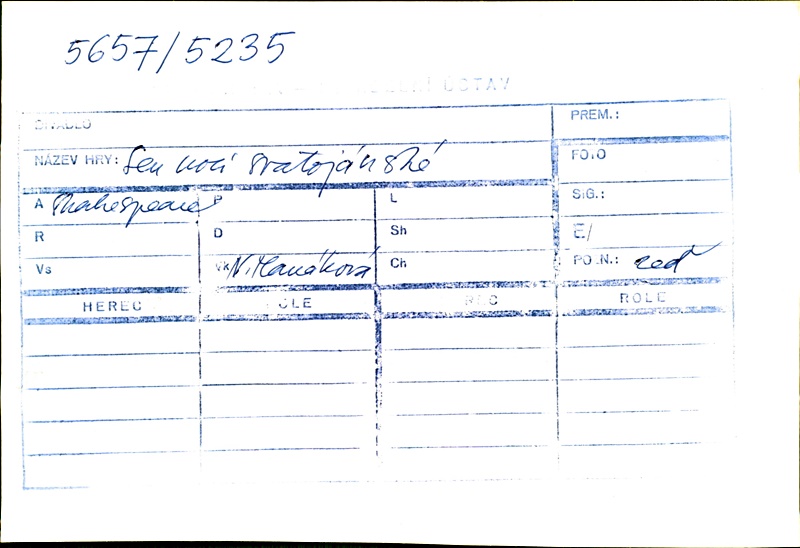 5657/5235
ÚSTAV
DIVADLO
PREM.:
NÁZEV HRY: Sen noci svatojánské
FOTO
A Shakespeare
P
L
SIG.:
R
D
Sh
E/
Vs
Vk N. Hanáková
Ch
POZN.: zeď
HEREC
ROLE
HEREC
ROLE